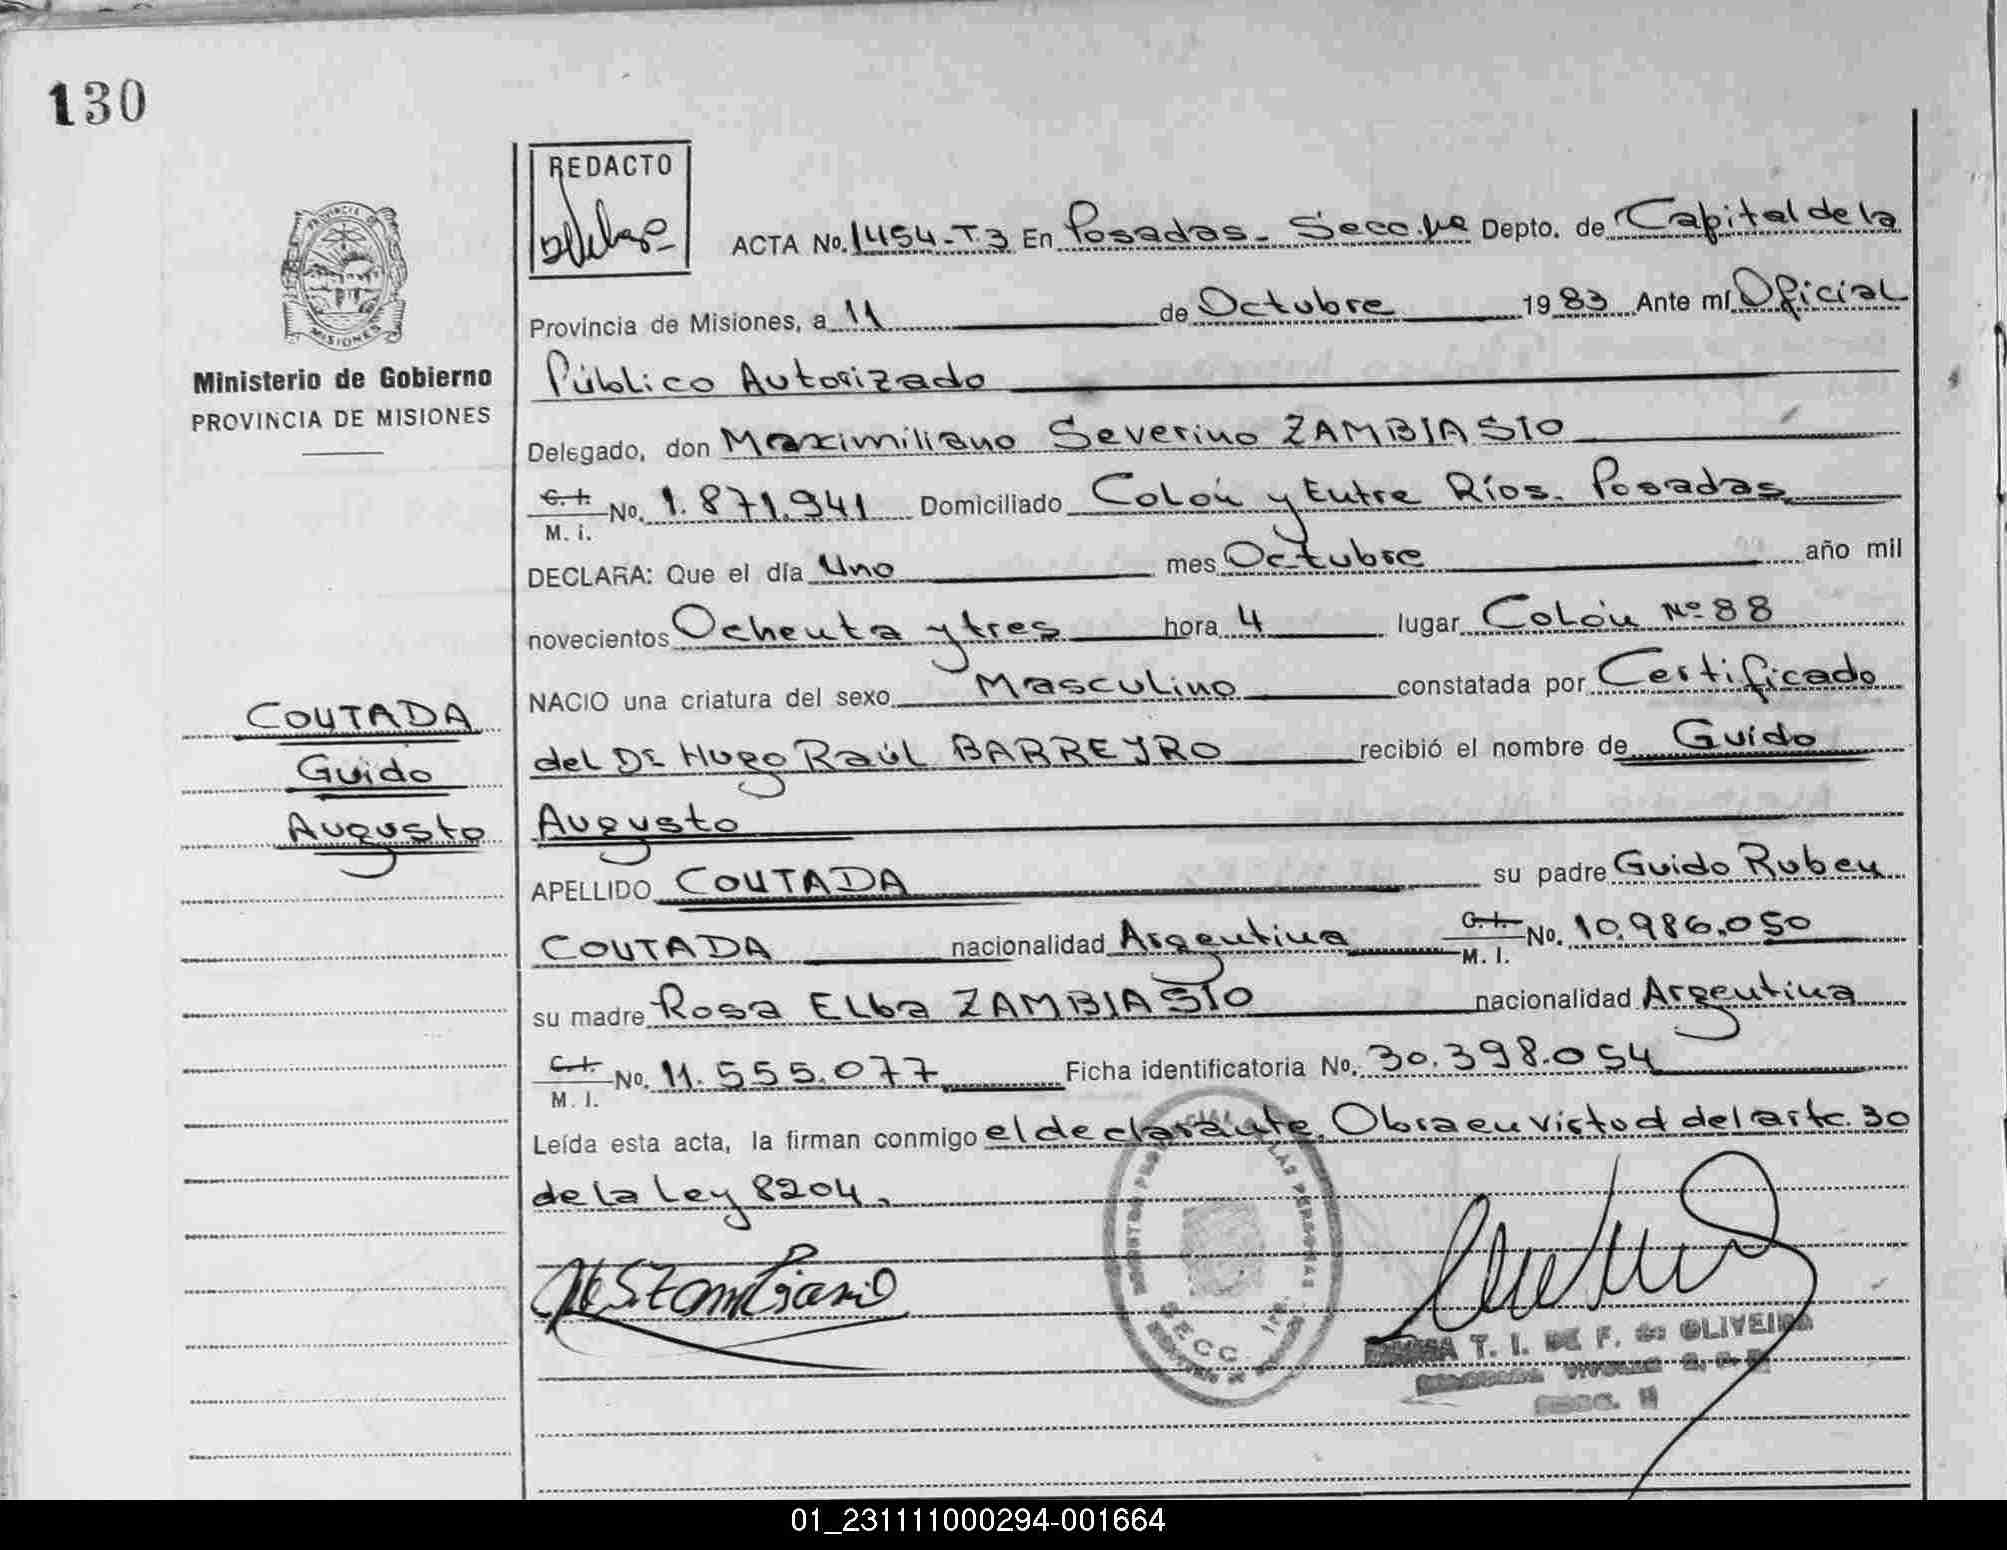 130
REDACTO
ACTA No. 1454-T.3 En Posadas- Secc. Depto. de Capital de la
Provincia de Misiones, a 11 de Octubre 1983 Ante mí Oficial
Ministerio de Gobierno
PROVINCIA DE MISIONES
Público Autorizado
Delegado, don Maximiliano Severino ZAMBIASIO
C. I. M. I. No. 1.871.941 Domiciliado Colón y Entre Ríos. Posadas
DECLARA: Que el día Uno mes Octubre año mil
novecientos Ochenta y tres hora 4 lugar Colón Nº 88
NACIO una criatura del sexo Masculino constatada por Certificado
del Dr Hugo Raúl BARREYRO recibió el nombre de Guido
Augusto
APELLIDO COUTADA su padre Guido Ruben
COUTADA nacionalidad Argentina C. I. M. I. No. 10.986.050
su madre Rosa Elba ZAMBIASIO nacionalidad Argentina
C. I. M. I. No. 11.555.077 Ficha identificatoria No. 30.398.054
Leída esta acta, la firman conmigo el declarante. Obra en virtud del artc. 30
de la Ley 8204.
COUTADA
Guido
Augusto
SECC.
T. I. DE F. de OLIVEIRA
01_231111000294-001664